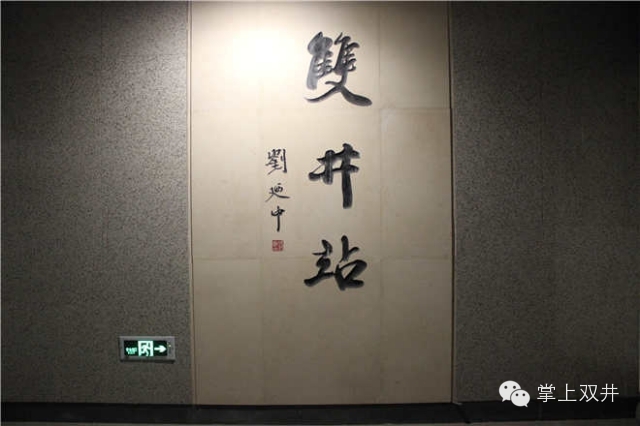 雙井站
劉廷中
掌上双井